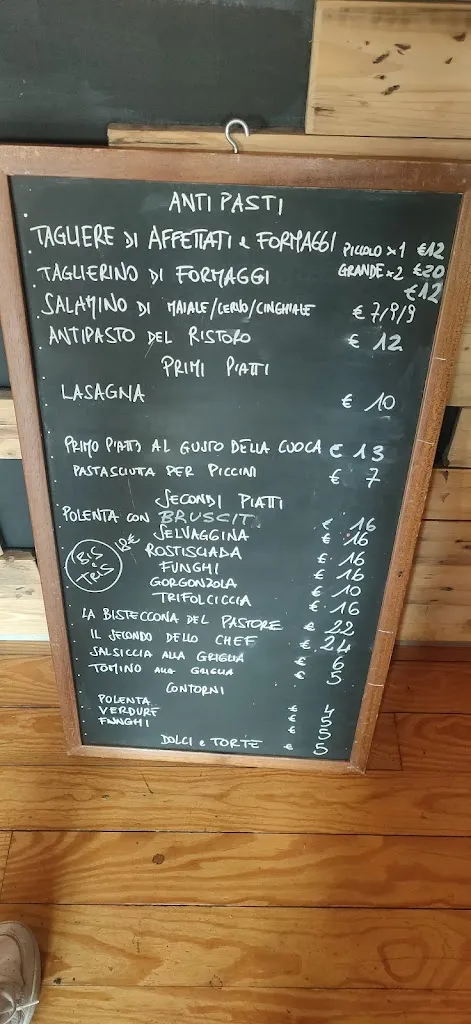 ANTIPASTI
TAGLIERE DI AFFETTATI e FORMAGGI PICCOLO x1 €12
GRANDE x2 €20
TAGLIERINO DI FORMAGGI €12
SALAMINO DI MAIALE/CERVO/CINGHIALE € 7/9/9
ANTIPASTO DEL RISTORO € 12
PRIMI PIATTI
LASAGNA € 10
PRIMO PIATTO AL GUSTO DELLA CUOCA € 13
PASTASCIUTA PER PICCINI € 7
SECONDI PIATTI
POLENTA CON BRUSCITT € 16
SELVAGGINA € 16
ROSTISCIADA € 16
FUNGHI € 16
GORGONZOLA € 10
TRIFOLCICCIA € 16
BIS
TRIS
18€
LA BISTECCONA DEL PASTORE € 22
IL SECONDO DELLO CHEF € 24
SALSICCIA ALLA GRIGLIA € 6
TOMINO ALLA GRIGLIA € 5
CONTORNI
POLENTA € 4
VERDURE € 5
FUNGHI € 5
DOLCI e TORTE € 5